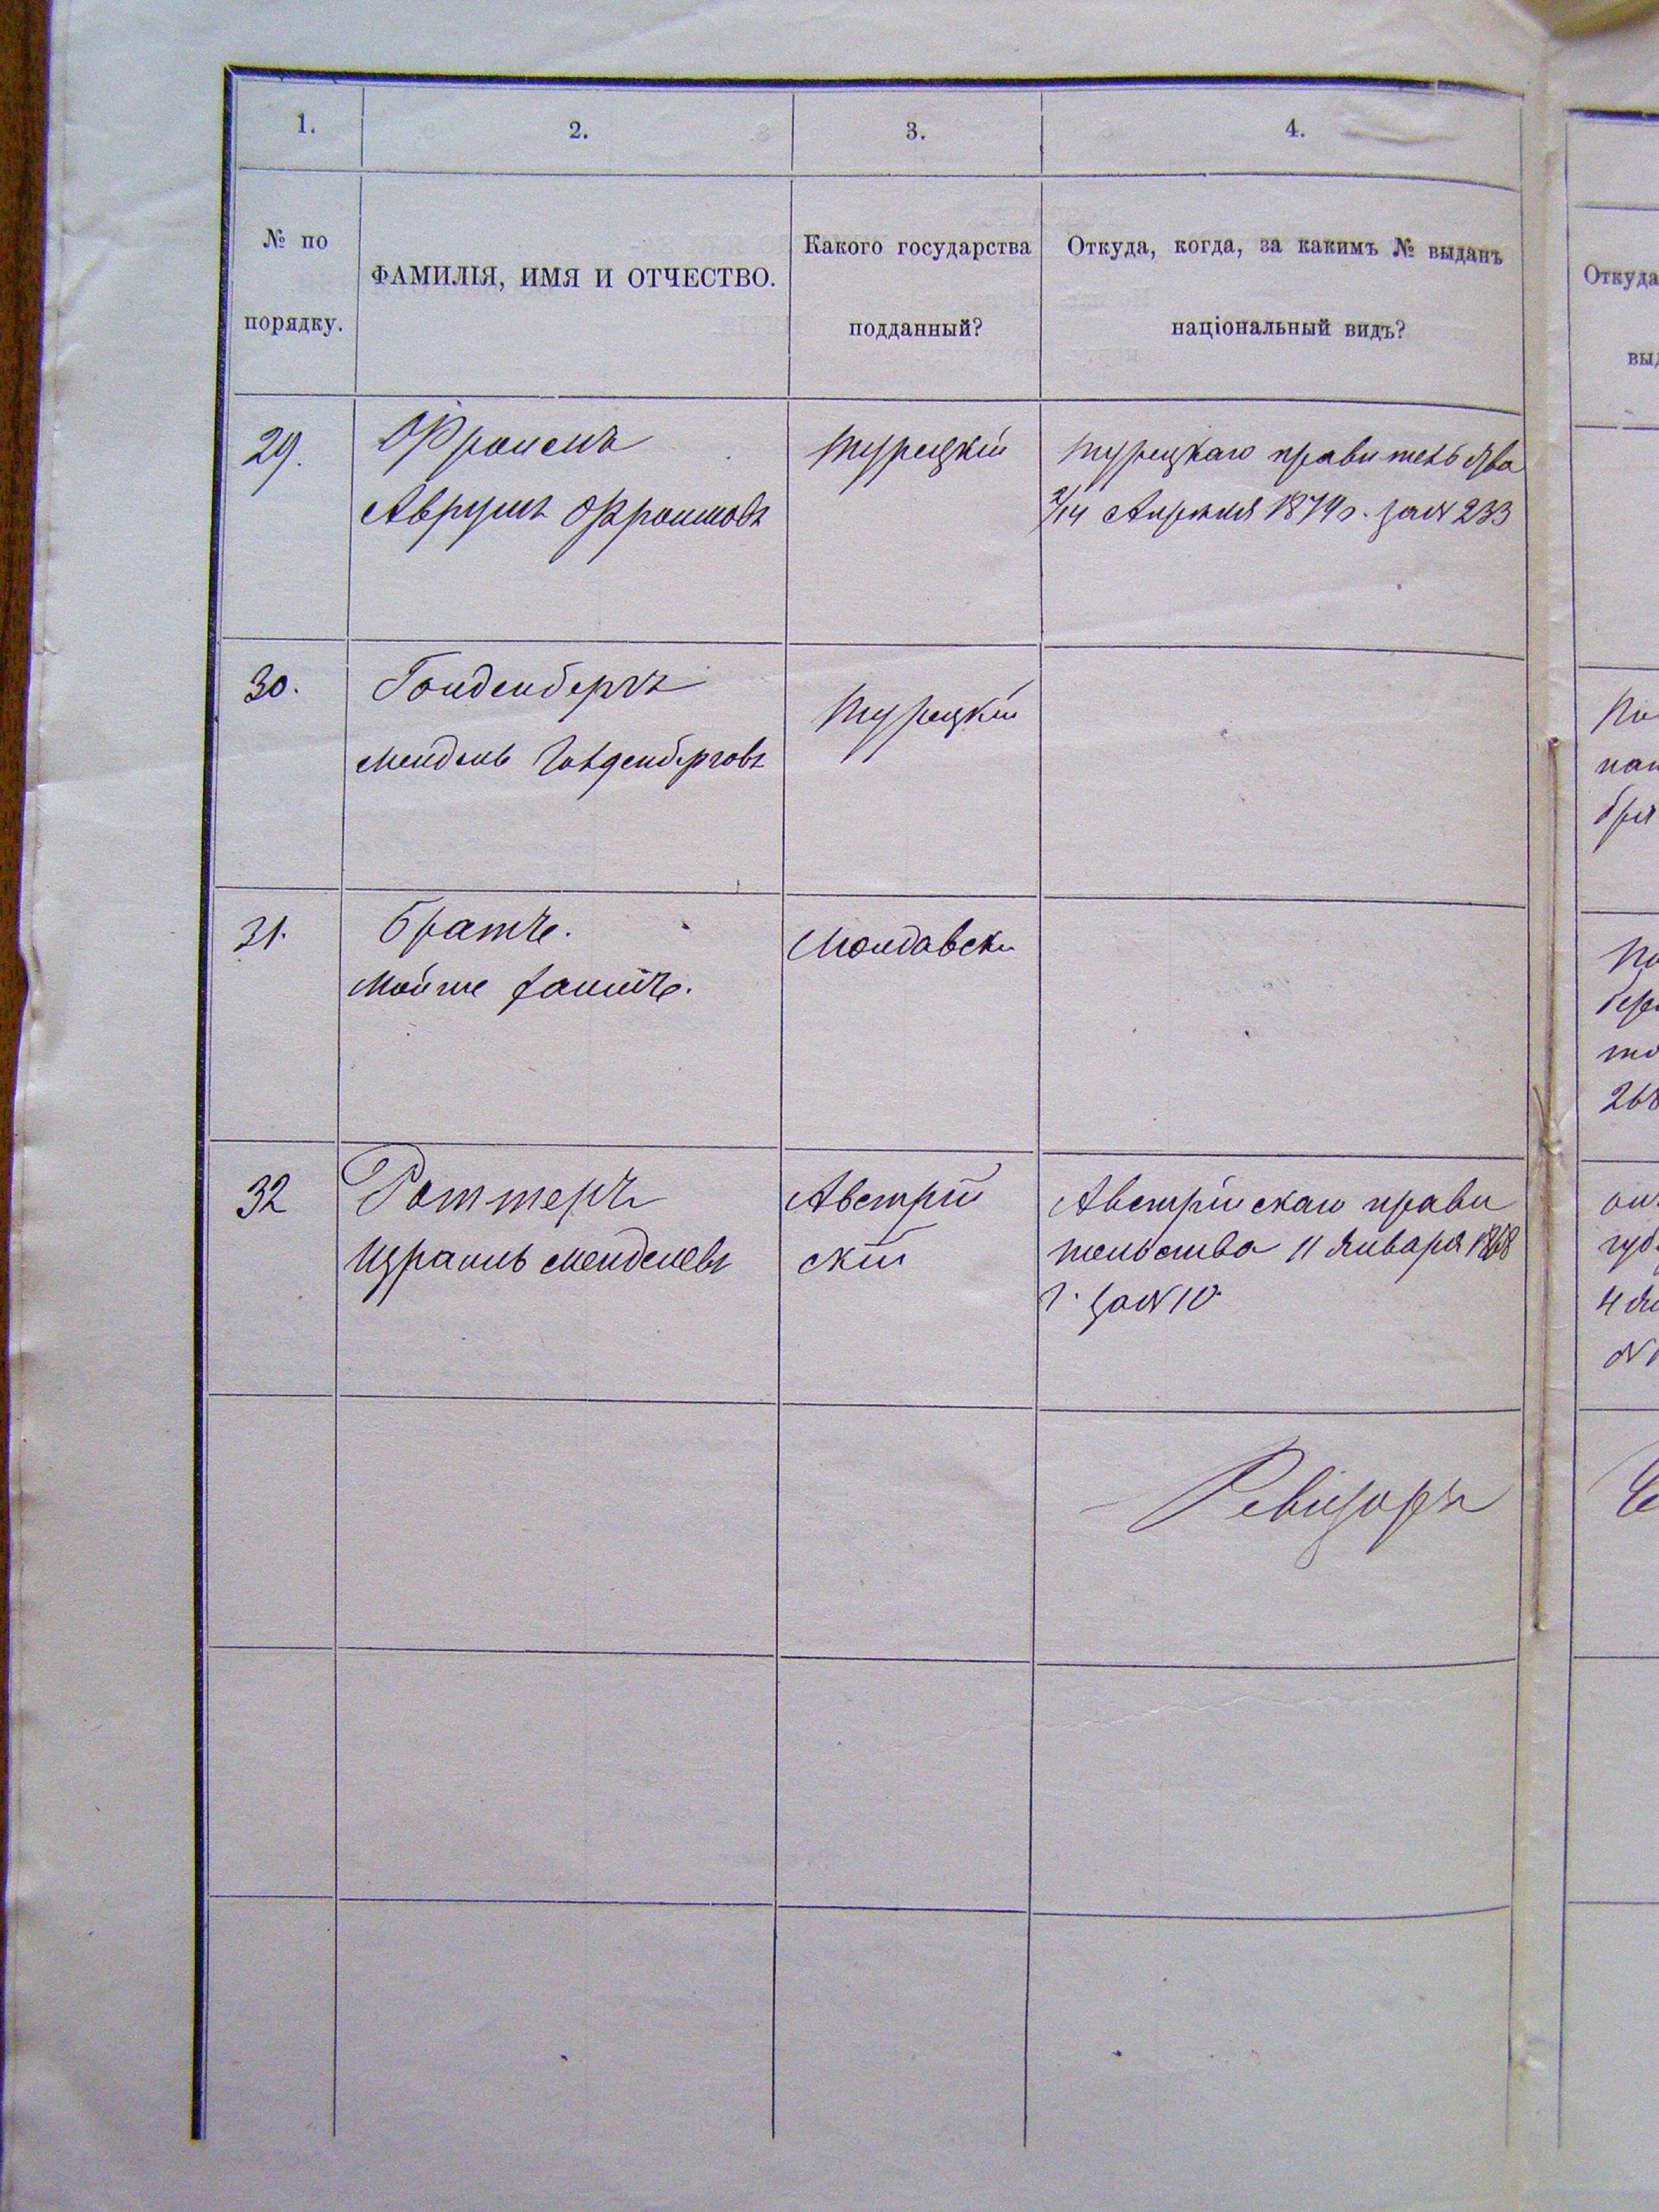 1.
2.
3.
4.
№ по
порядку.
ФАМИЛІЯ, ИМЯ И ОТЧЕСТВО.
Какого государства
подданный?
Откуда, когда, за какимъ № выданъ
національный видъ?
Откуда
выд
29.
Аврумъ
Турецкій
Турецкаго правительства
2/14 Апреля 1879 г. за № 233
30.
Гольденбергъ
Мендель Гольденберговъ
Турецкій
31.
Мойше
Молдавски
32
Роттеръ
Израиль Менделевъ
Австрій
скій
Австрійскаго прави
тельства 11 Января 1868
г. за № 10
268
Ревизоръ